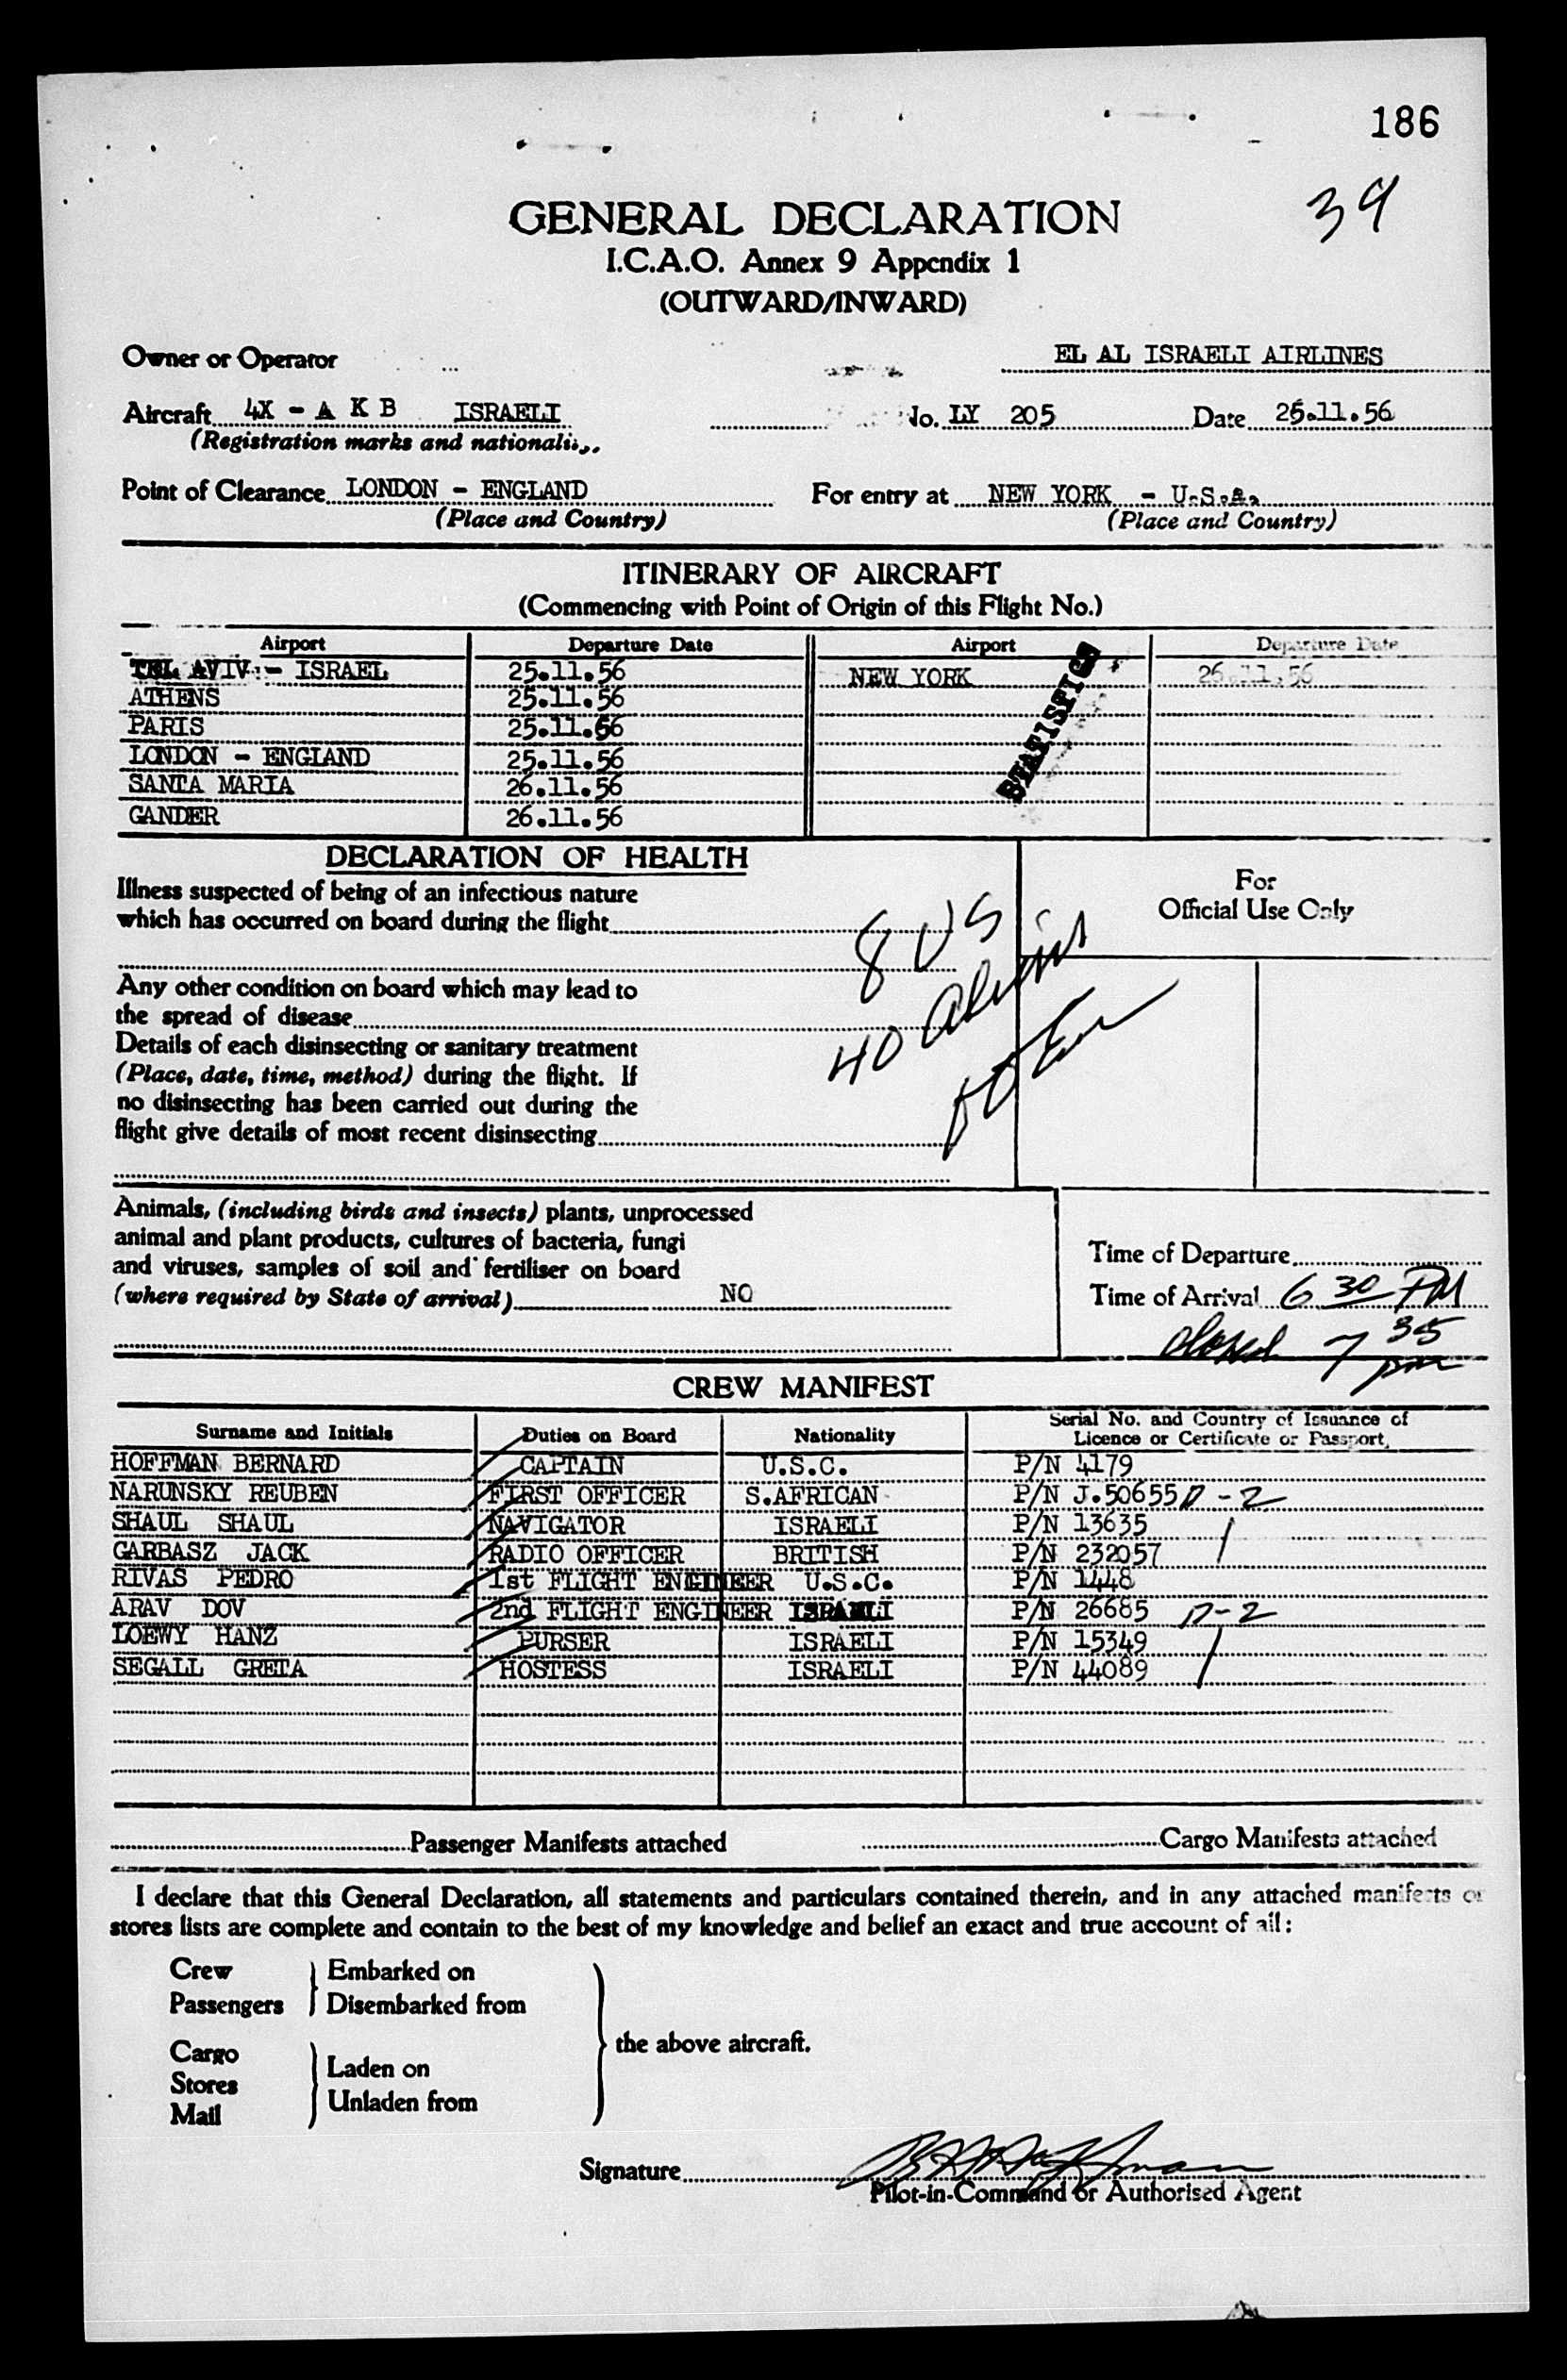 186
39
GENERAL DECLARATION
I.C.A.O. Annex 9 Appendix 1
(OUTWARD/INWARD)
Owner or Operator EL AL ISRAELI AIRLINES
Aircraft 4X - A K B ISRAELI No. LY 205 Date 25.11.56
(Registration marks and nationality)
Point of Clearance LONDON - ENGLAND For entry at NEW YORK - U.S.A.
(Place and Country) (Place and Country)
ITINERARY OF AIRCRAFT
(Commencing with Point of Origin of this Flight No.)
Airport Departure Date Airport Departure Date
TEL AVIV - ISRAEL 25.11.56 NEW YORK 26.11.56
ATHENS 25.11.56
PARIS 25.11.56
LONDON - ENGLAND 25.11.56
SANTA MARIA 26.11.56
GANDER 26.11.56
STATISTICS
DECLARATION OF HEALTH
For
Official Use Only
Illness suspected of being of an infectious nature
which has occurred on board during the flight
8 US
40 aliens
Any other condition on board which may lead to
the spread of disease
Details of each disinsecting or sanitary treatment
(Place, date, time, method) during the flight. If
no disinsecting has been carried out during the
flight give details of most recent disinsecting
Animals, (including birds and insects) plants, unprocessed
animal and plant products, cultures of bacteria, fungi
and viruses, samples of soil and fertiliser on board
(where required by State of arrival) NO
Time of Departure
Time of Arrival 6 30 PM
closed 7 35 pm
CREW MANIFEST
Surname and Initials Duties on Board Nationality Serial No. and Country of Issuance of
Licence or Certificate or Passport.
HOFFMAN BERNARD CAPTAIN U.S.C. P/N 4179
NARUNSKY REUBEN FIRST OFFICER S.AFRICAN P/N J.50655 D-2
SHAUL SHAUL NAVIGATOR ISRAELI P/N 13635
GARBASZ JACK RADIO OFFICER BRITISH P/N 232057
RIVAS PEDRO 1st FLIGHT ENGINEER U.S.C. P/N 1448
ARAV DOV 2nd FLIGHT ENGINEER ISRAELI P/N 26685 D-2
LOEWY HANZ PURSER ISRAELI P/N 15349
SEGALL GRETA HOSTESS ISRAELI P/N 44089
Passenger Manifests attached Cargo Manifests attached
I declare that this General Declaration, all statements and particulars contained therein, and in any attached manifests or
stores lists are complete and contain to the best of my knowledge and belief an exact and true account of all:
Crew Embarked on
Passengers Disembarked from
the above aircraft.
Cargo
Stores Laden on
Mail Unladen from
Signature B H Hoffman
Pilot-in-Command or Authorised Agent